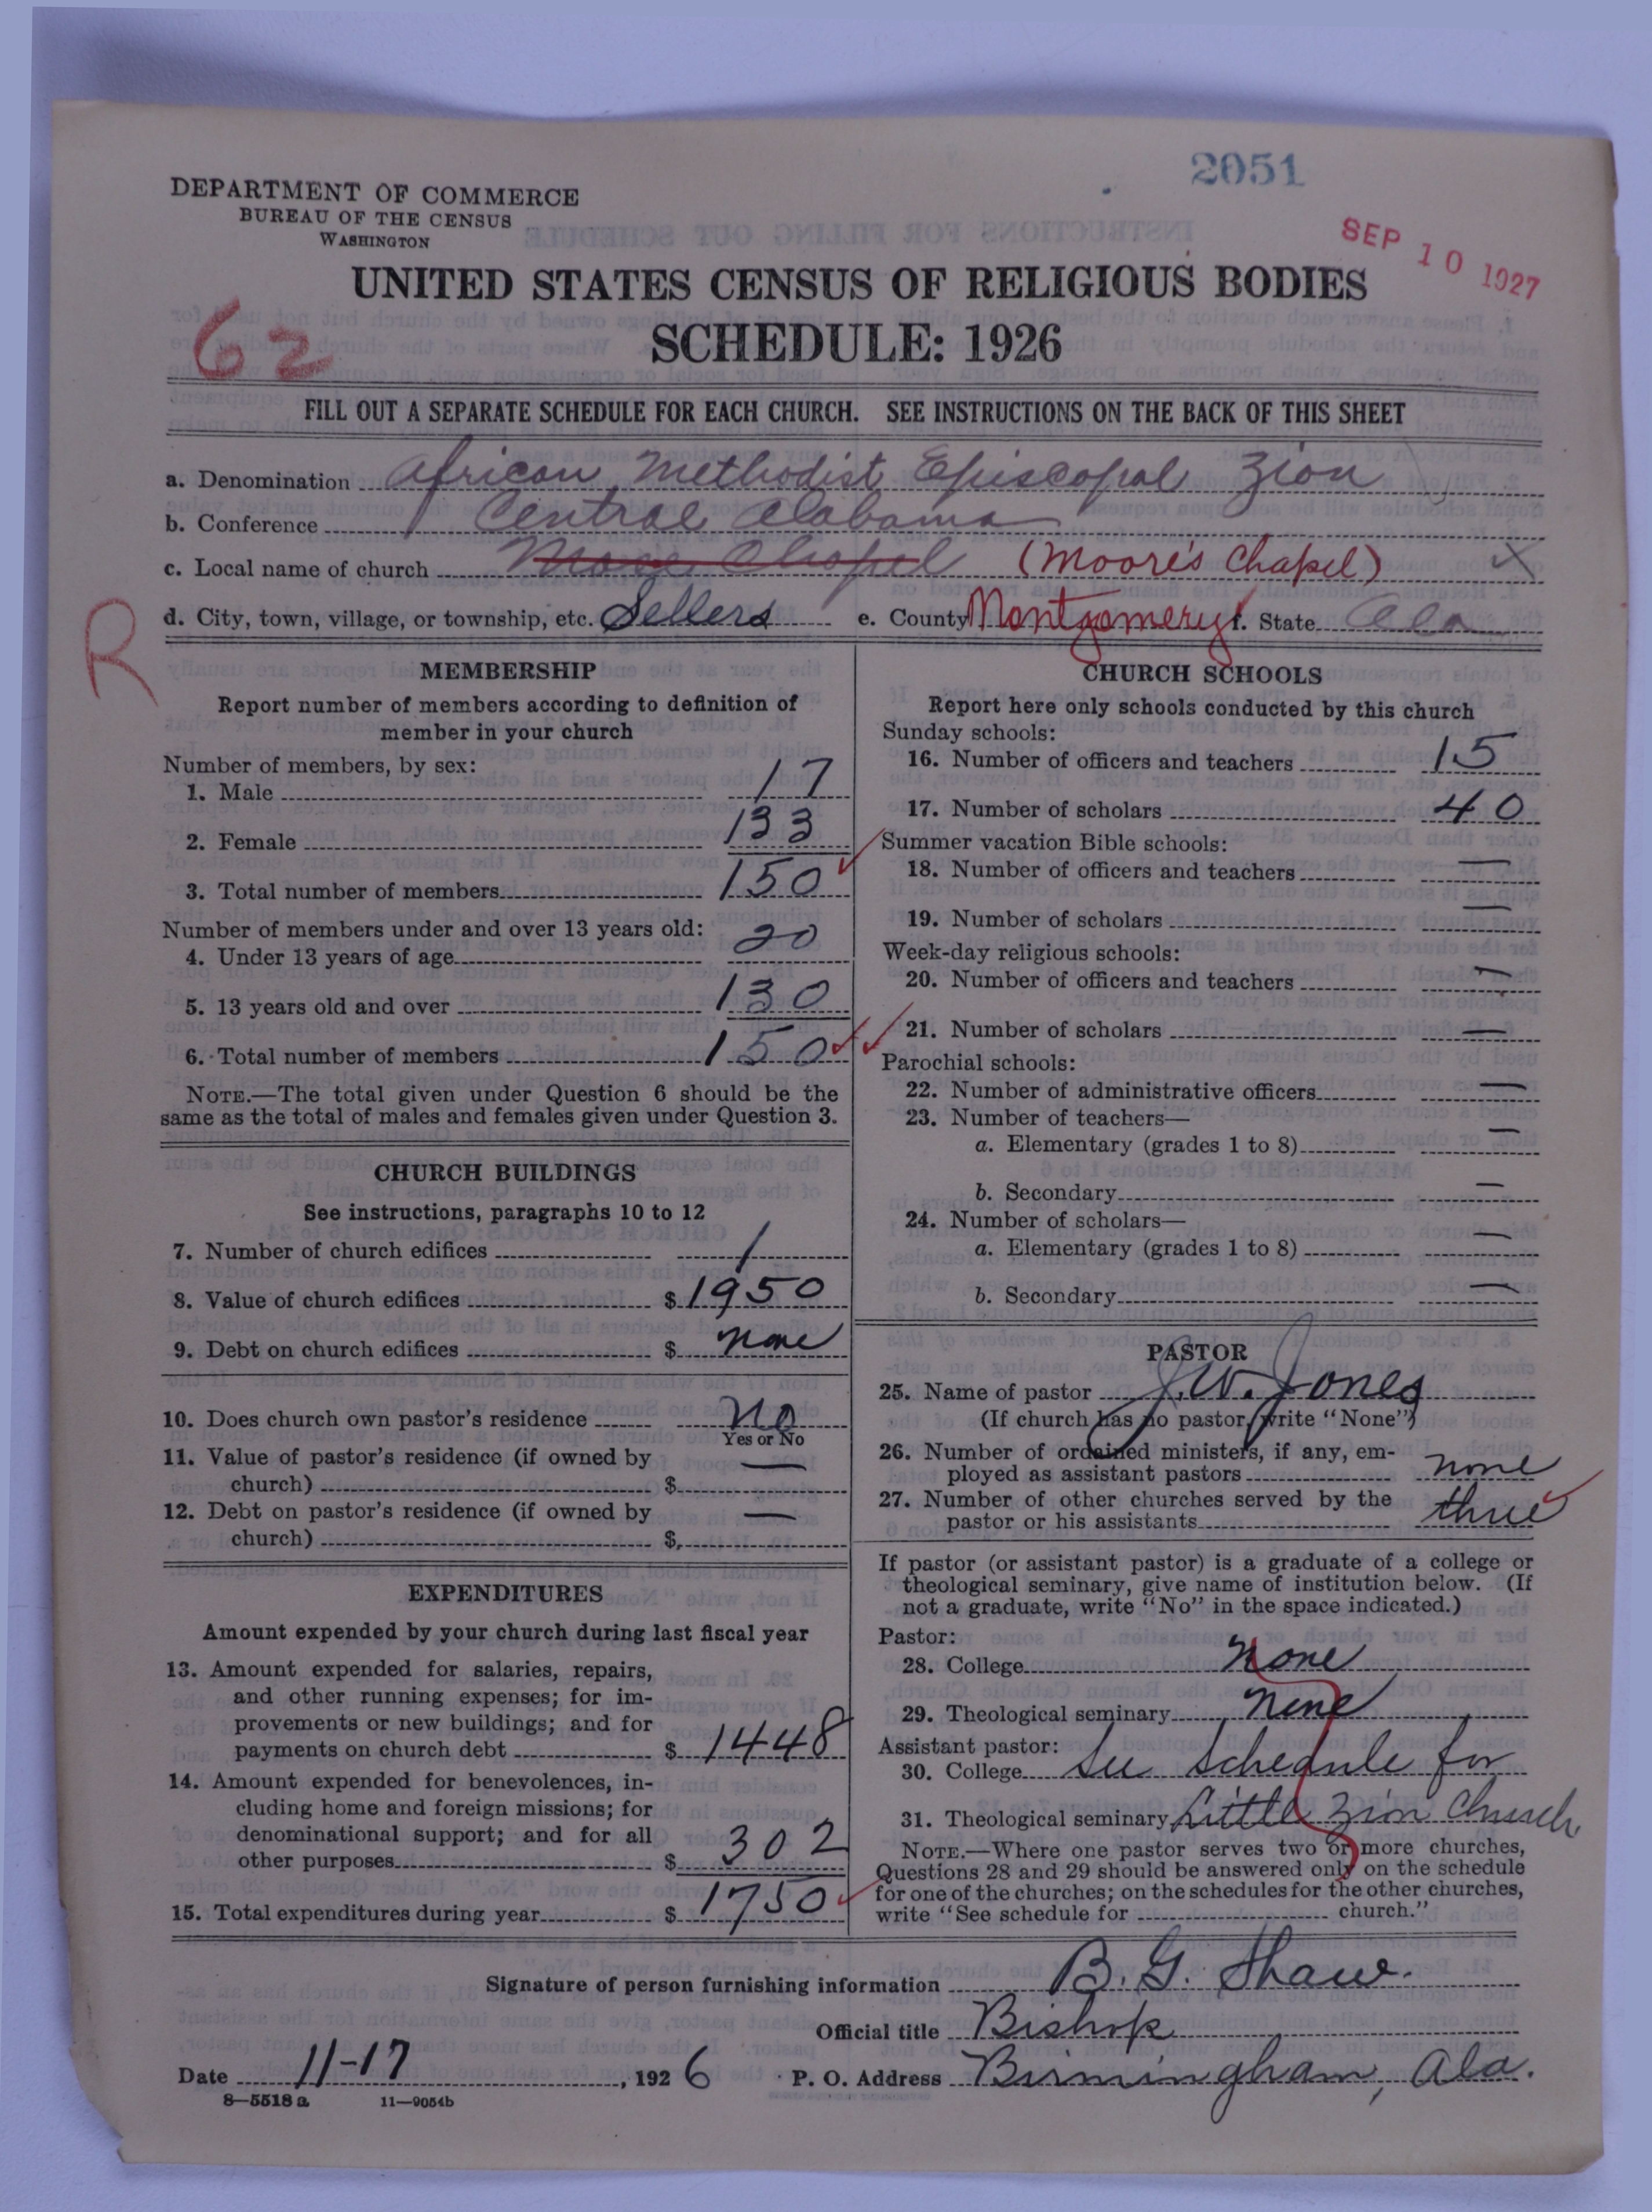 2051
DEPARTMENT OF COMMERCE
BUREAU OF THE CENSUS
WASHINGTON
SEP 10 1927
UNITED STATES CENSUS OF RELIGIOUS BODIES
SCHEDULE: 1926
62
FILL OUT A SEPARATE SCHEDULE FOR EACH CHURCH. SEE INSTRUCTIONS ON THE BACK OF THIS SHEET
a. Denomination African Methodist Episcopal Zion
b. Conference Central Alabama
c. Local name of church Chapel (Moore's Chapel)
d. City, town, village, or township, etc. Sellers e. County Montgomery f. State Ala
R
MEMBERSHIP
Report number of members according to definition of
member in your church
Number of members, by sex:
1. Male 17
2. Female 133
3. Total number of members 150
Number of members under and over 13 years old:
4. Under 13 years of age 20
5. 13 years old and over 130
6. Total number of members 150
NOTE.—The total given under Question 6 should be the
same as the total of males and females given under Question 3.
CHURCH BUILDINGS
See instructions, paragraphs 10 to 12
7. Number of church edifices 1
8. Value of church edifices $ 1950
9. Debt on church edifices $ none
10. Does church own pastor's residence No
Yes or No
11. Value of pastor's residence (if owned by
church) $ —
12. Debt on pastor's residence (if owned by
church) $ —
EXPENDITURES
Amount expended by your church during last fiscal year
13. Amount expended for salaries, repairs,
and other running expenses; for im-
provements or new buildings; and for
payments on church debt $ 1448
14. Amount expended for benevolences, in-
cluding home and foreign missions; for
denominational support; and for all
other purposes $ 302
15. Total expenditures during year $ 1750
CHURCH SCHOOLS
Report here only schools conducted by this church
Sunday schools:
16. Number of officers and teachers 15
17. Number of scholars 40
Summer vacation Bible schools:
18. Number of officers and teachers —
19. Number of scholars —
Week-day religious schools:
20. Number of officers and teachers —
21. Number of scholars —
Parochial schools:
22. Number of administrative officers —
23. Number of teachers—
a. Elementary (grades 1 to 8) —
b. Secondary —
24. Number of scholars—
a. Elementary (grades 1 to 8) —
b. Secondary —
PASTOR
25. Name of pastor J. W. Jones
(If church has no pastor, write "None")
26. Number of ordained ministers, if any, em-
ployed as assistant pastors none
27. Number of other churches served by the
pastor or his assistants three
If pastor (or assistant pastor) is a graduate of a college or
theological seminary, give name of institution below. (If
not a graduate, write "No" in the space indicated.)
Pastor:
28. College none
29. Theological seminary none
Assistant pastor:
30. College See schedule for
31. Theological seminary Little Zion Church
NOTE.—Where one pastor serves two or more churches,
Questions 28 and 29 should be answered only on the schedule
for one of the churches; on the schedules for the other churches,
write "See schedule for church."
Signature of person furnishing information B. G. Shaw.
Official title Bishop
Date 11-17, 1926 P. O. Address Birmingham, Ala.
8—5518 a 11—9054b